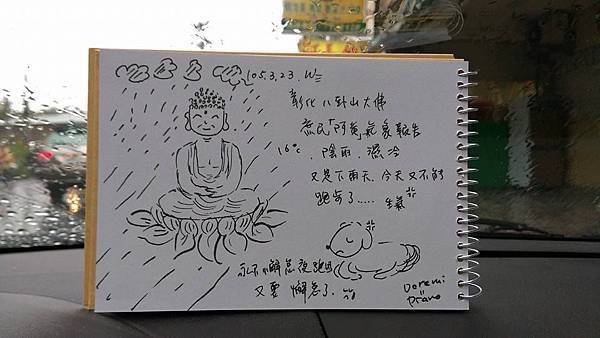 105.3.23. W三
彰化八卦山大佛
庶民「阿萬氣象報告
16°c、陰雨、濕冷
又是下雨天、今天又不能
跑步了..... 生氣
永不懈怠夜跑團
又要懈怠了.
Doremi
Piano